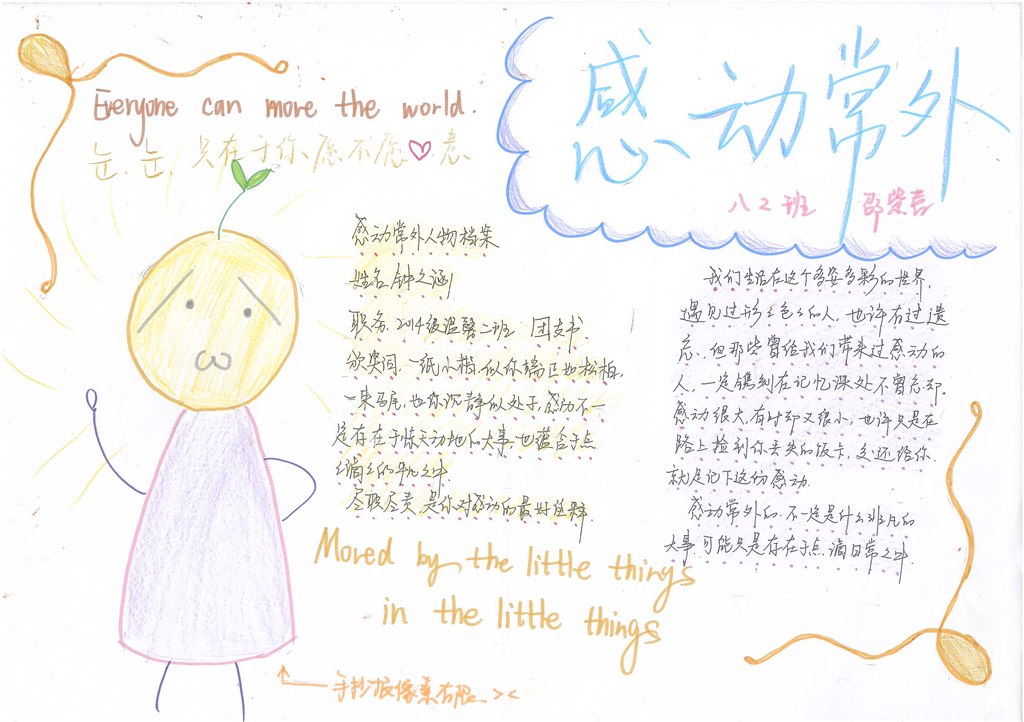 Everyone can move the world.
只在于你愿不愿♡意
感动常外
八2班 邵紫荐
感动常外人物档案
姓名.钟之涵
职务.2014级温馨二班 团支书
颁奖词.一纸小楷.似你端正也松柏.
一束马尾,也你沉静似处子,感动不一
定存在于惊天动地的大事,也蕴含于点
滴之的平凡之中.
尽职尽责,是你对感动的最好诠释
Moved by the little things
in the little things
手抄报像素有限 ><
我们生活在这个多姿多彩的世界,
遇见过形形色色的人.也许有过遗
忘.但那些曾给我们带来过感动的
人,一定镌刻在记忆深处不曾忘却.
感动很大,有时却又很小,也许只是在
路上捡到你丢失的饭卡,交还给你.
就足记下这份感动.
感动常外的.不一定是什么非凡的
大事.可能只是存在于点滴日常之中.